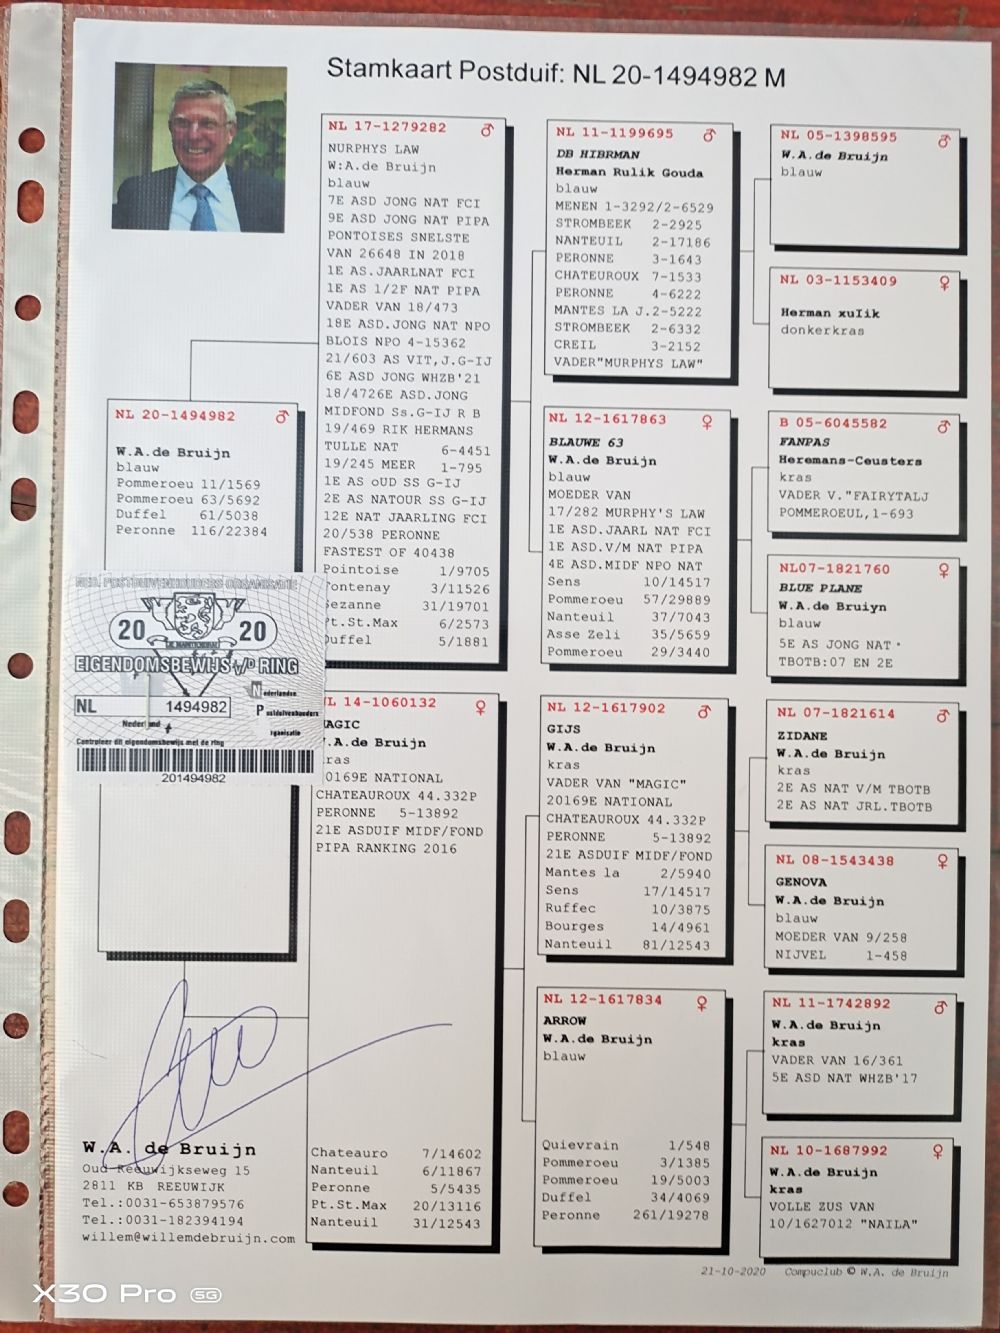 Stamkaart Postduif: NL 20-1494982 M
NL 20-1494982 ♂
W.A.de Bruijn
blauw
Pommeroeu 11/1569
Pommeroeu 63/5692
Duffel 61/5038
Peronne 116/22384
NED. POSTDUIVENHOUDERS ORGANISATIE
20 20
JE MAINTIENDRAI
EIGENDOMSBEWIJS v/D RING
NL 1494982
Nederland
Nederlandse
Postduivenhouders
rganisatie
Controleer dit eigendomsbewijs met de ring
201494982
NL 17-1279282 ♂
NURPHYS LAW
W:A.de Bruijn
blauw
7E ASD JONG NAT FCI
9E ASD JONG NAT PIPA
PONTOISES SNELSTE
VAN 26648 IN 2018
1E AS.JAARLNAT FCI
1E AS 1/2F NAT PIPA
VADER VAN 18/473
18E ASD.JONG NAT NPO
BLOIS NPO 4-15362
21/603 AS VIT,J.G-IJ
6E ASD JONG WHZB'21
18/4726E ASD.JONG
MIDFOND Ss.G-IJ R B
19/469 RIK HERMANS
TULLE NAT 6-4451
19/245 MEER 1-795
1E AS oUD SS G-IJ
2E AS NATOUR SS G-IJ
12E NAT JAARLING FCI
20/538 PERONNE
FASTEST OF 40438
Pointoise 1/9705
ontenay 3/11526
ezanne 31/19701
t.St.Max 6/2573
uffel 5/1881
L 14-1060132 ♀
AGIC
.A.de Bruijn
ras
0169E NATIONAL
CHATEAUROUX 44.332P
PERONNE 5-13892
21E ASDUIF MIDF/FOND
PIPA RANKING 2016
Chateauro 7/14602
Nanteuil 6/11867
Peronne 5/5435
Pt.St.Max 20/13116
Nanteuil 31/12543
NL 11-1199695 ♂
DB HIBRMAN
Herman Rulik Gouda
blauw
MENEN 1-3292/2-6529
STROMBEEK 2-2925
NANTEUIL 2-17186
PERONNE 3-1643
CHATEUROUX 7-1533
PERONNE 4-6222
MANTES LA J.2-5222
STROMBEEK 2-6332
CREIL 3-2152
VADER"MURPHYS LAW"
NL 12-1617863 ♀
BLAUWE 63
W.A.de Bruijn
blauw
MOEDER VAN
17/282 MURPHY'S LAW
1E ASD.JAARL NAT FCI
1E ASD.V/M NAT PIPA
4E ASD.MIDF NPO NAT
Sens 10/14517
Pommeroeu 57/29889
Nanteuil 37/7043
Asse Zeli 35/5659
Pommeroeu 29/3440
NL 12-1617902 ♂
GIJS
W.A.de Bruijn
kras
VADER VAN "MAGIC"
20169E NATIONAL
CHATEAUROUX 44.332P
PERONNE 5-13892
21E ASDUIF MIDF/FOND
Mantes la 2/5940
Sens 17/14517
Ruffec 10/3875
Bourges 14/4961
Nanteuil 81/12543
NL 12-1617834 ♀
ARROW
W.A.de Bruijn
blauw
Quievrain 1/548
Pommeroeu 3/1385
Pommeroeu 19/5003
Duffel 34/4069
Peronne 261/19278
NL 05-1398595 ♂
W.A.de Bruijn
blauw
NL 03-1153409 ♀
Herman xulik
donkerkras
B 05-6045582 ♂
FANPAS
Heremans-Ceusters
kras
VADER V."FAIRYTALJ
POMMEROEUL,1-693
NL07-1821760 ♀
BLUE PLANE
W.A.de Bruiyn
blauw
5E AS JONG NAT·
TBOTB:07 EN 2E
NL 07-1821614 ♂
ZIDANE
W.A.de Bruijn
kras
2E AS NAT V/M TBOTB
2E AS NAT JRL.TBOTB
NL 08-1543438 ♀
GENOVA
W.A.de Bruijn
blauw
MOEDER VAN 9/258
NIJVEL 1-458
NL 11-1742892 ♂
W.A.de Bruijn
kras
VADER VAN 16/361
5E ASD NAT WHZB'17
NL 10-1687992 ♀
W.A.de Bruijn
kras
VOLLE ZUS VAN
10/1627012 "NAILA"
W.A. de Bruijn
Oud-Reeuwijkseweg 15
2811 KB REEUWIJK
Tel.:0031-653879576
Tel.:0031-182394194
willem@willemdebruijn.com
21-10-2020 Compuclub © W.A. de Bruijn
X30 Pro 5G